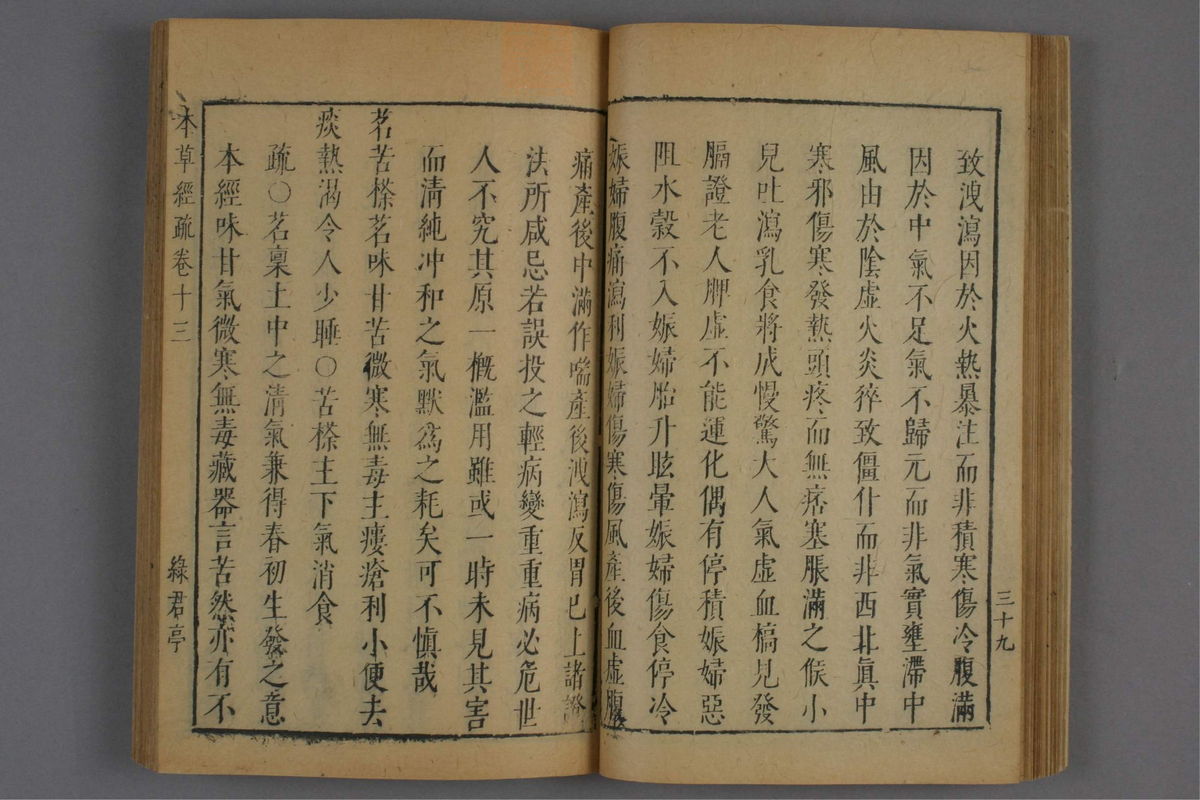 三十九
致洩瀉因於火熱暴注而非積寒傷冷腹滿
因於中氣不足氣不歸元而非氣實壅滯中
風由於陰虛火炎猝致僵仆而非西北眞中
寒邪傷寒發熱頭疼而無痞塞脹滿之候小
兒吐瀉乳食將成慢驚大人氣虛血槁見發
膈證老人脾虛不能運化偶有停積娠婦惡
阻水穀不入娠婦胎升眩暈娠婦傷食停冷
娠婦腹痛瀉利娠婦傷寒傷風產後血虛腹
痛產後中滿作喘產後洩瀉反胃已上諸證
法所咸忌若誤投之輕病變重重病必危世
人不究其原一概濫用雖或一時未見其害
而清純冲和之氣默爲之耗矣可不愼哉
茗苦㯶茗味甘苦微寒無毒主瘻瘡利小便去
痰熱渴令人少睡〇苦㯶主下氣消食
疏〇茗稟土中之清氣兼得春初生發之意
本經味甘氣微寒無毒藏器言苦然亦有不
本草經疏卷十三
綠君亭